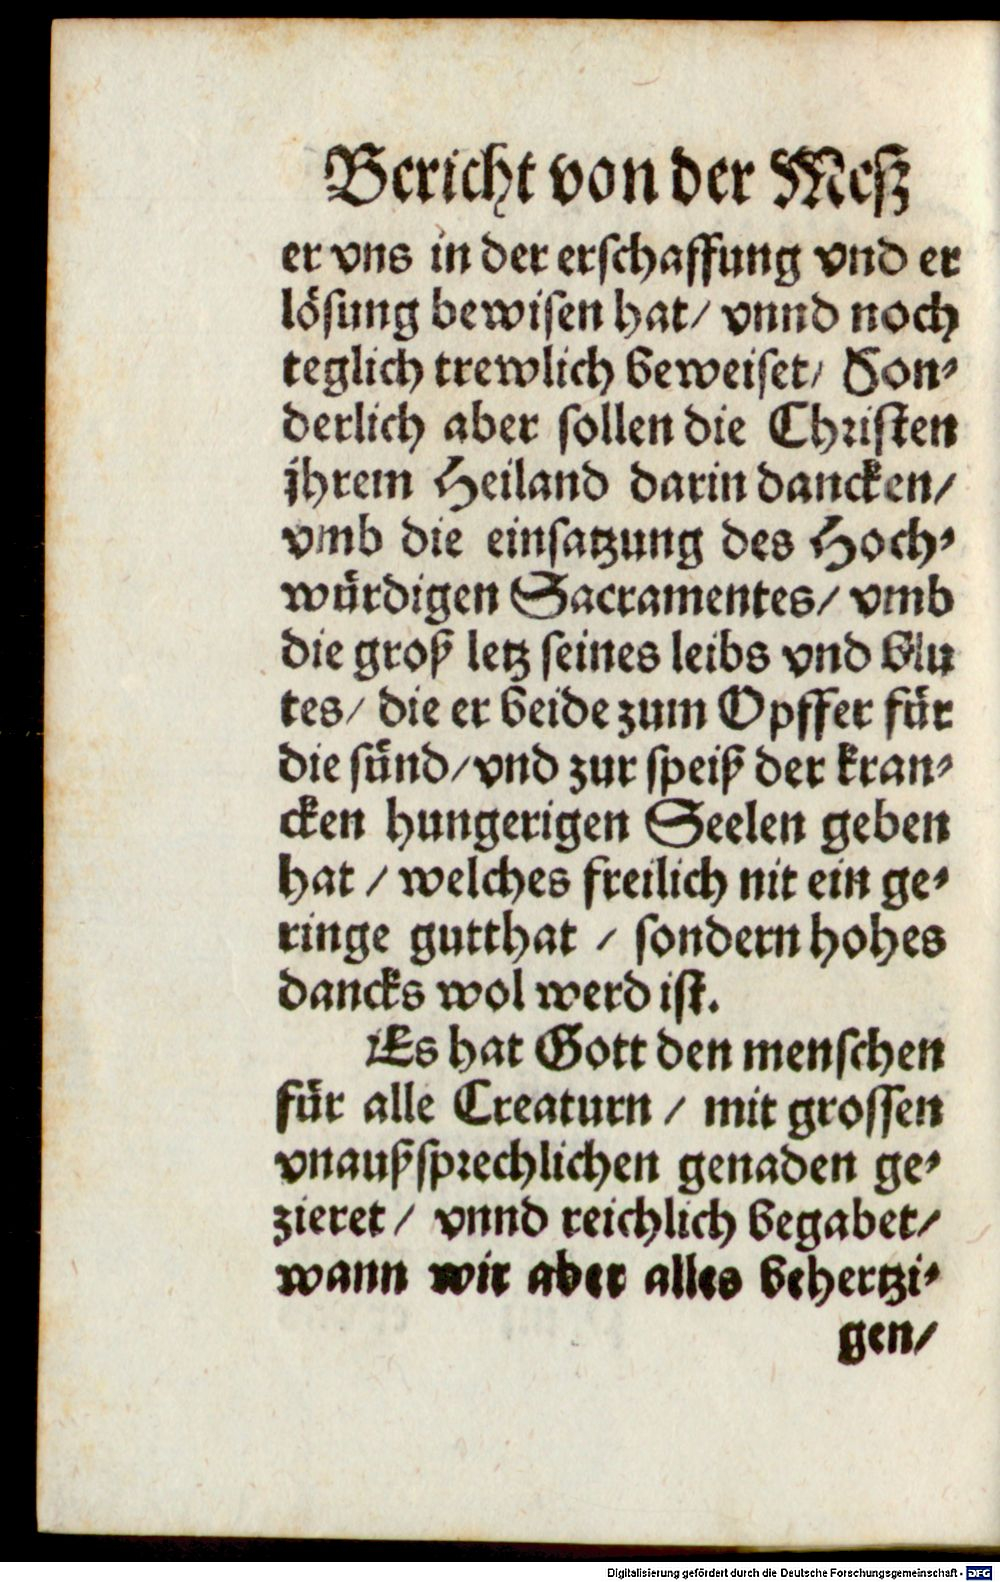 Bericht von der Meß
er vns in der erschaffung vnd er
lösung bewisen hat/ vnnd noch
teglich trewlich beweiset/ Son⸗
derlich aber sollen die Christen
jhrem Heiland darin dancken/
vmb die einsatzung des Hoch⸗
würdigen Sacramentes/ vmb
die groß letz seines leibs vnd blu
tes/ die er beide zum Opffer für
die sünd/ vnd zur speiß der kran⸗
cken hungerigen Seelen geben
hat / welches freilich nit ein ge⸗
ringe gutthat / sondern hohes
dancks wol werd ist.
Es hat Gott den menschen
für alle Creaturn / mit grossen
vnaußsprechlichen genaden ge⸗
zieret / vnnd reichlich begabet/
wann wir aber alles behertzi⸗
gen/
Digitalisierung gefördert durch die Deutsche Forschungsgemeinschaft - DFG